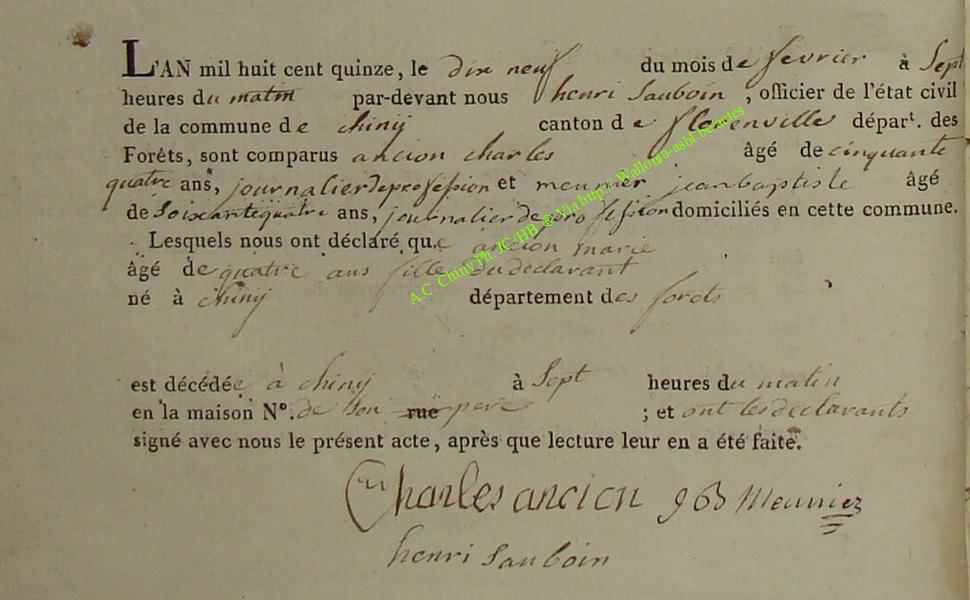 L'AN mil huit cent quinze, le dix neuf du mois de fevrier à Sept
heures du matin par-devant nous henri Sauboin, officier de l'état civil
de la commune de chiny canton de florenville départ. des
Forêts, sont comparus ancion charles âgé de cinquante
quatre ans, journalier de profession et meunier jean baptiste âgé
de Soixante quatre ans, journalier de profession domiciliés en cette commune.
Lesquels nous ont déclaré que ancion marie
âgé de quatre ans fille du declarant
né à chiny département des forets
est décédée à chiny à Sept heures du matin
en la maison N°. de Son rue pere ; et ont les declarants
signé avec nous le présent acte, après que lecture leur en a été faite.
Charles ancion JB Meunier
henri Sauboin
A.C. Chiny Ph. JC/HB @ Via http://Wallonia-asbl.be/actes